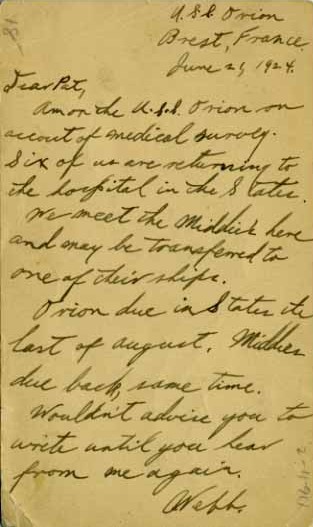 U.S.S. Orion
Brest, France.
June 21, 1924.
81
Dear Pat,
Am on the U.S.S. Orion on
accout of medical survey.
Six of us are returning to
the hospital in the States.
We meet the Middies here
and may be transferred to
one of their ships.
Orion due in States the
last of august. Middies
due back, same time.
Wouldn't advise you to
write until you hear
from me again.
Webb.